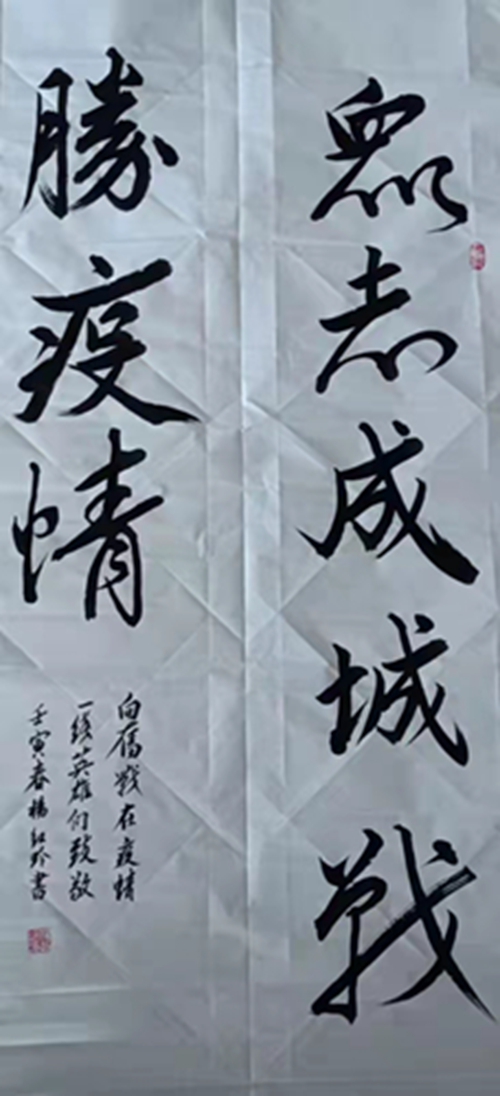 眾志成城戰
勝疫情
向奮戰在疫情
一線英雄们致敬
壬寅春楊紅玲書